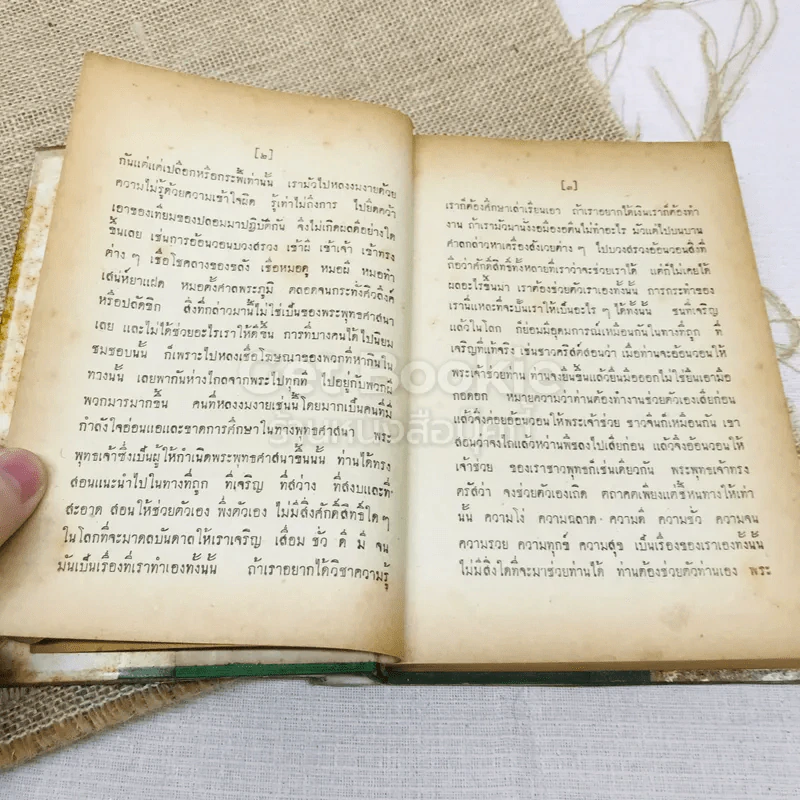 [๒]
กันแต่แค่เปลือกหรือกระพี้เท่านั้น เรามัวไปหลงงมงายด้วย
ความไม่รู้ด้วยความเข้าใจผิด รู้เท่าไม่ถึงการ ไปยึดคว้า
เอาของเทียมของปลอมมาปฏิบัติกัน จึงไม่เกิดผลดีอย่างใด
ขึ้นเลย เช่นการอ้อนวอนบวงสรวง เข้าผี เข้าเจ้า เข้าทรง
ต่าง ๆ เชื่อโชคลางของขลัง เชื่อหมอดู หมอผี หมอทำ
เสน่ห์ยาแฝด หมอดงศาลพระภูมิ ตลอดจนกระทั่งศิวลึงค์
หรือปลัดขิก สิ่งที่กล่าวมานี้ไม่ใช่เป็นของพระพุทธศาสนา
เลย และไม่ได้ช่วยอะไรเราให้ดีขึ้น การที่บางคนได้ไปนิยม
ชมชอบนั้น ก็เพราะไปหลงเชื่อโฆษณาของพวกที่หากินใน
ทางนั้น เลยพากันห่างไกลจากพระไปทุกที ไปอยู่กับพวกผี
พวกมารมากขึ้น คนที่หลงงมงายเช่นนี้โดยมากเป็นคนที่มี
กำลังใจอ่อนแอและขาดการศึกษาในทางพุทธศาสนา พระ
พุทธเจ้าซึ่งเป็นผู้ให้กำเนิดพระพุทธศาสนาขึ้นนั้น ท่านได้ทรง
สอนแนะนำไปในทางที่ถูก ที่เจริญ ที่สว่าง ที่สงบและที่
สะอาด สอนให้ช่วยตัวเอง พึ่งตัวเอง ไม่มีสิ่งศักดิ์สิทธิ์ใด ๆ
ในโลกที่จะมาดลบันดาลให้เราเจริญ เสื่อม ชั่ว ดี มี จน
มันเป็นเรื่องที่เราทำเองทั้งนั้น ถ้าเราอยากได้วิชาความรู้
[๓]
เราก็ต้องศึกษาเล่าเรียนเอา ถ้าเราอยากได้เงินเราก็ต้องทำ
งาน ถ้าเรามัวมานั่งงอมืองอตีนไม่ทำอะไร มัวแต่ไปบนบาน
ศาลกล่าวหาเครื่องสังเวยต่าง ๆ ไปบวงสรวงอ้อนวอนสิ่งที่
ถือว่าศักดิ์สิทธิ์ทั้งหลายที่เราว่าจะช่วยเราได้ แต่ก็ไม่เคยได้
ผลอะไรขึ้นมา เราต้องช่วยตัวเราเองทั้งนั้น การกระทำของ
เรานี่แหละที่จะปั้นเราให้เป็นอะไร ๆ ได้ทั้งนั้น ชนที่เจริญ
แล้วในโลก ก็ย่อมมีอุดมการณ์เหมือนกันในทางที่ถูก ที่
เจริญที่แท้จริง เช่นชาวคริสต์สอนว่า เมื่อท่านจะอ้อนวอนให้
พระเจ้าช่วยท่าน ท่านจงยืนขึ้นแล้วยื่นมือออกไม่ใช่ยืนเอามือ
กอดอก หมายความว่าท่านต้องทำงานช่วยตัวเองเสียก่อน
แล้วจึงค่อยอ้อนวอนให้พระเจ้าช่วย ชาวจีนก็เหมือนกัน เขา
สอนว่าจงไถแล้วหว่านพืชลงไปเสียก่อน แล้วจึงอ้อนวอนให้
เจ้าช่วย ของเราชาวพุทธก็เช่นเดียวกัน พระพุทธเจ้าทรง
ตรัสว่า จงช่วยตัวเองเถิด ตถาคตเพียงแต่ชี้หนทางให้เท่า
นั้น ความโง่ ความฉลาด ความดี ความชั่ว ความจน
ความรวย ความทุกข์ ความสุข เป็นเรื่องของเราเองทั้งนั้น
ไม่มีสิ่งใดที่จะมาช่วยท่านได้ ท่านต้องช่วยตัวท่านเอง พระ